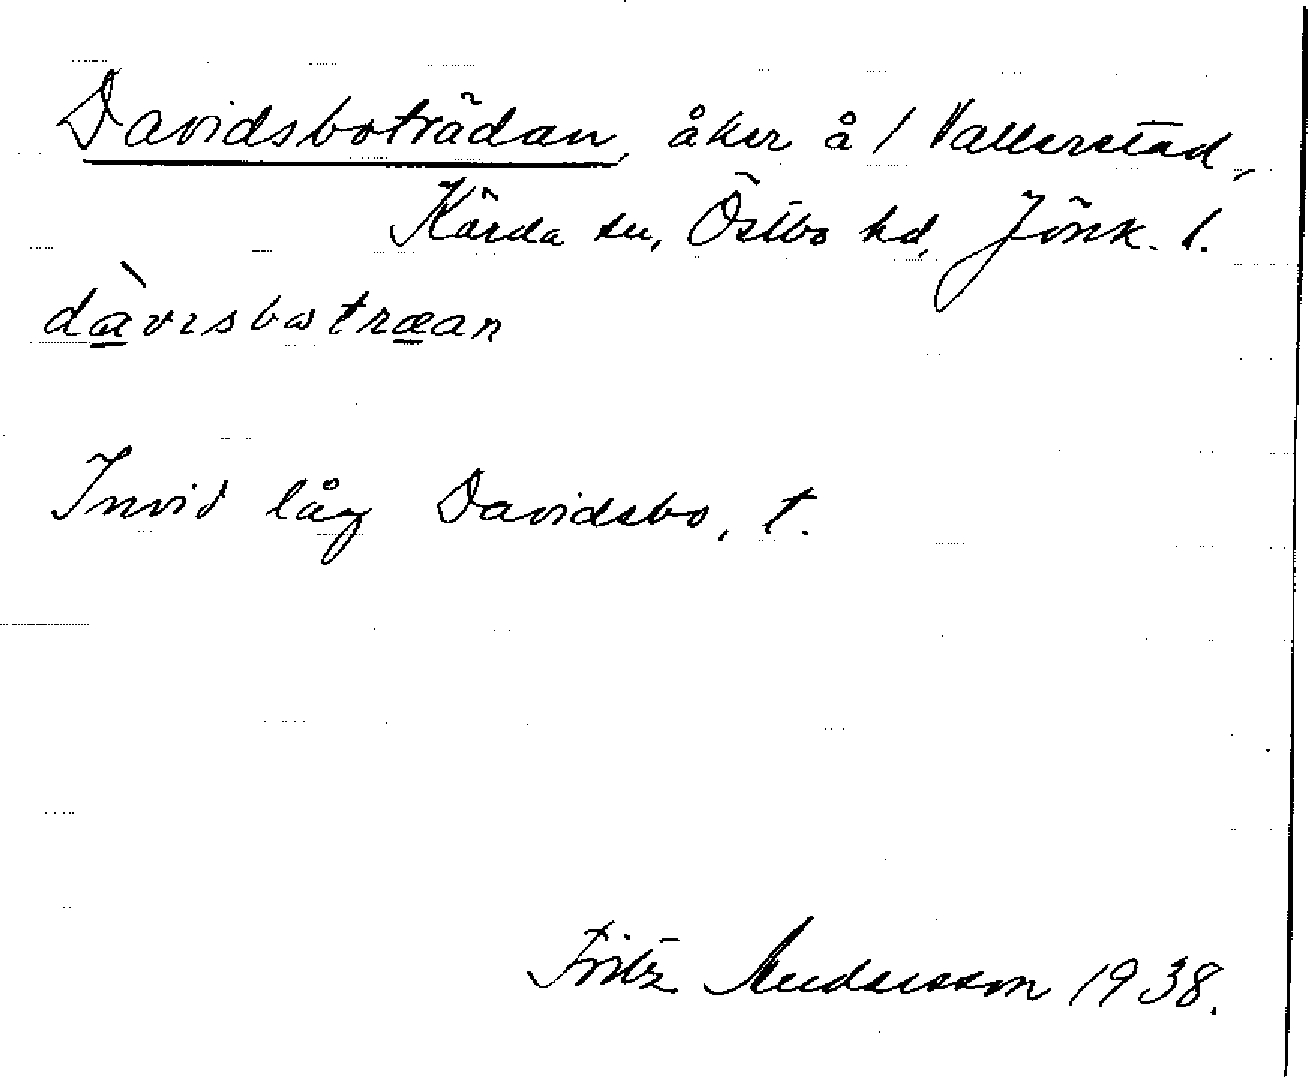 Davidsboträdan, åker å / Vallerstad,
Kärda sn, Östbo hd, Jönk. l.
dàvisbotræan
Invid låg Davidsbo, t.
Fritz Andersson 1938.